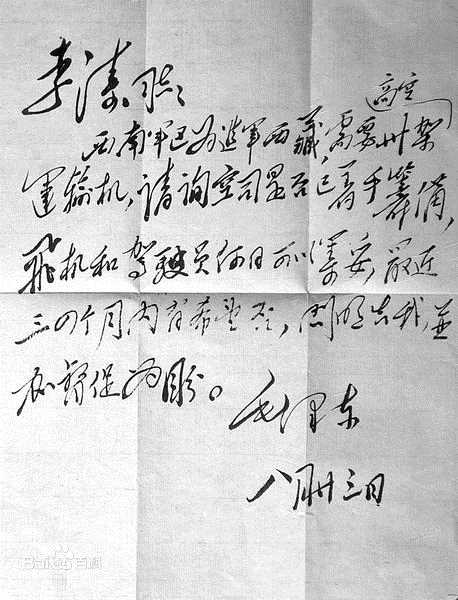 李涛同志
高空
西南军区为進軍西藏,需要卅架
運输机,请询空司是否已着手筹備,
飛机和驾驶员何日可以筹妥,最近
三四个月内有希望否,問明告我,並
加督促为盼。
毛泽东
八月廿三日
Baidu百科